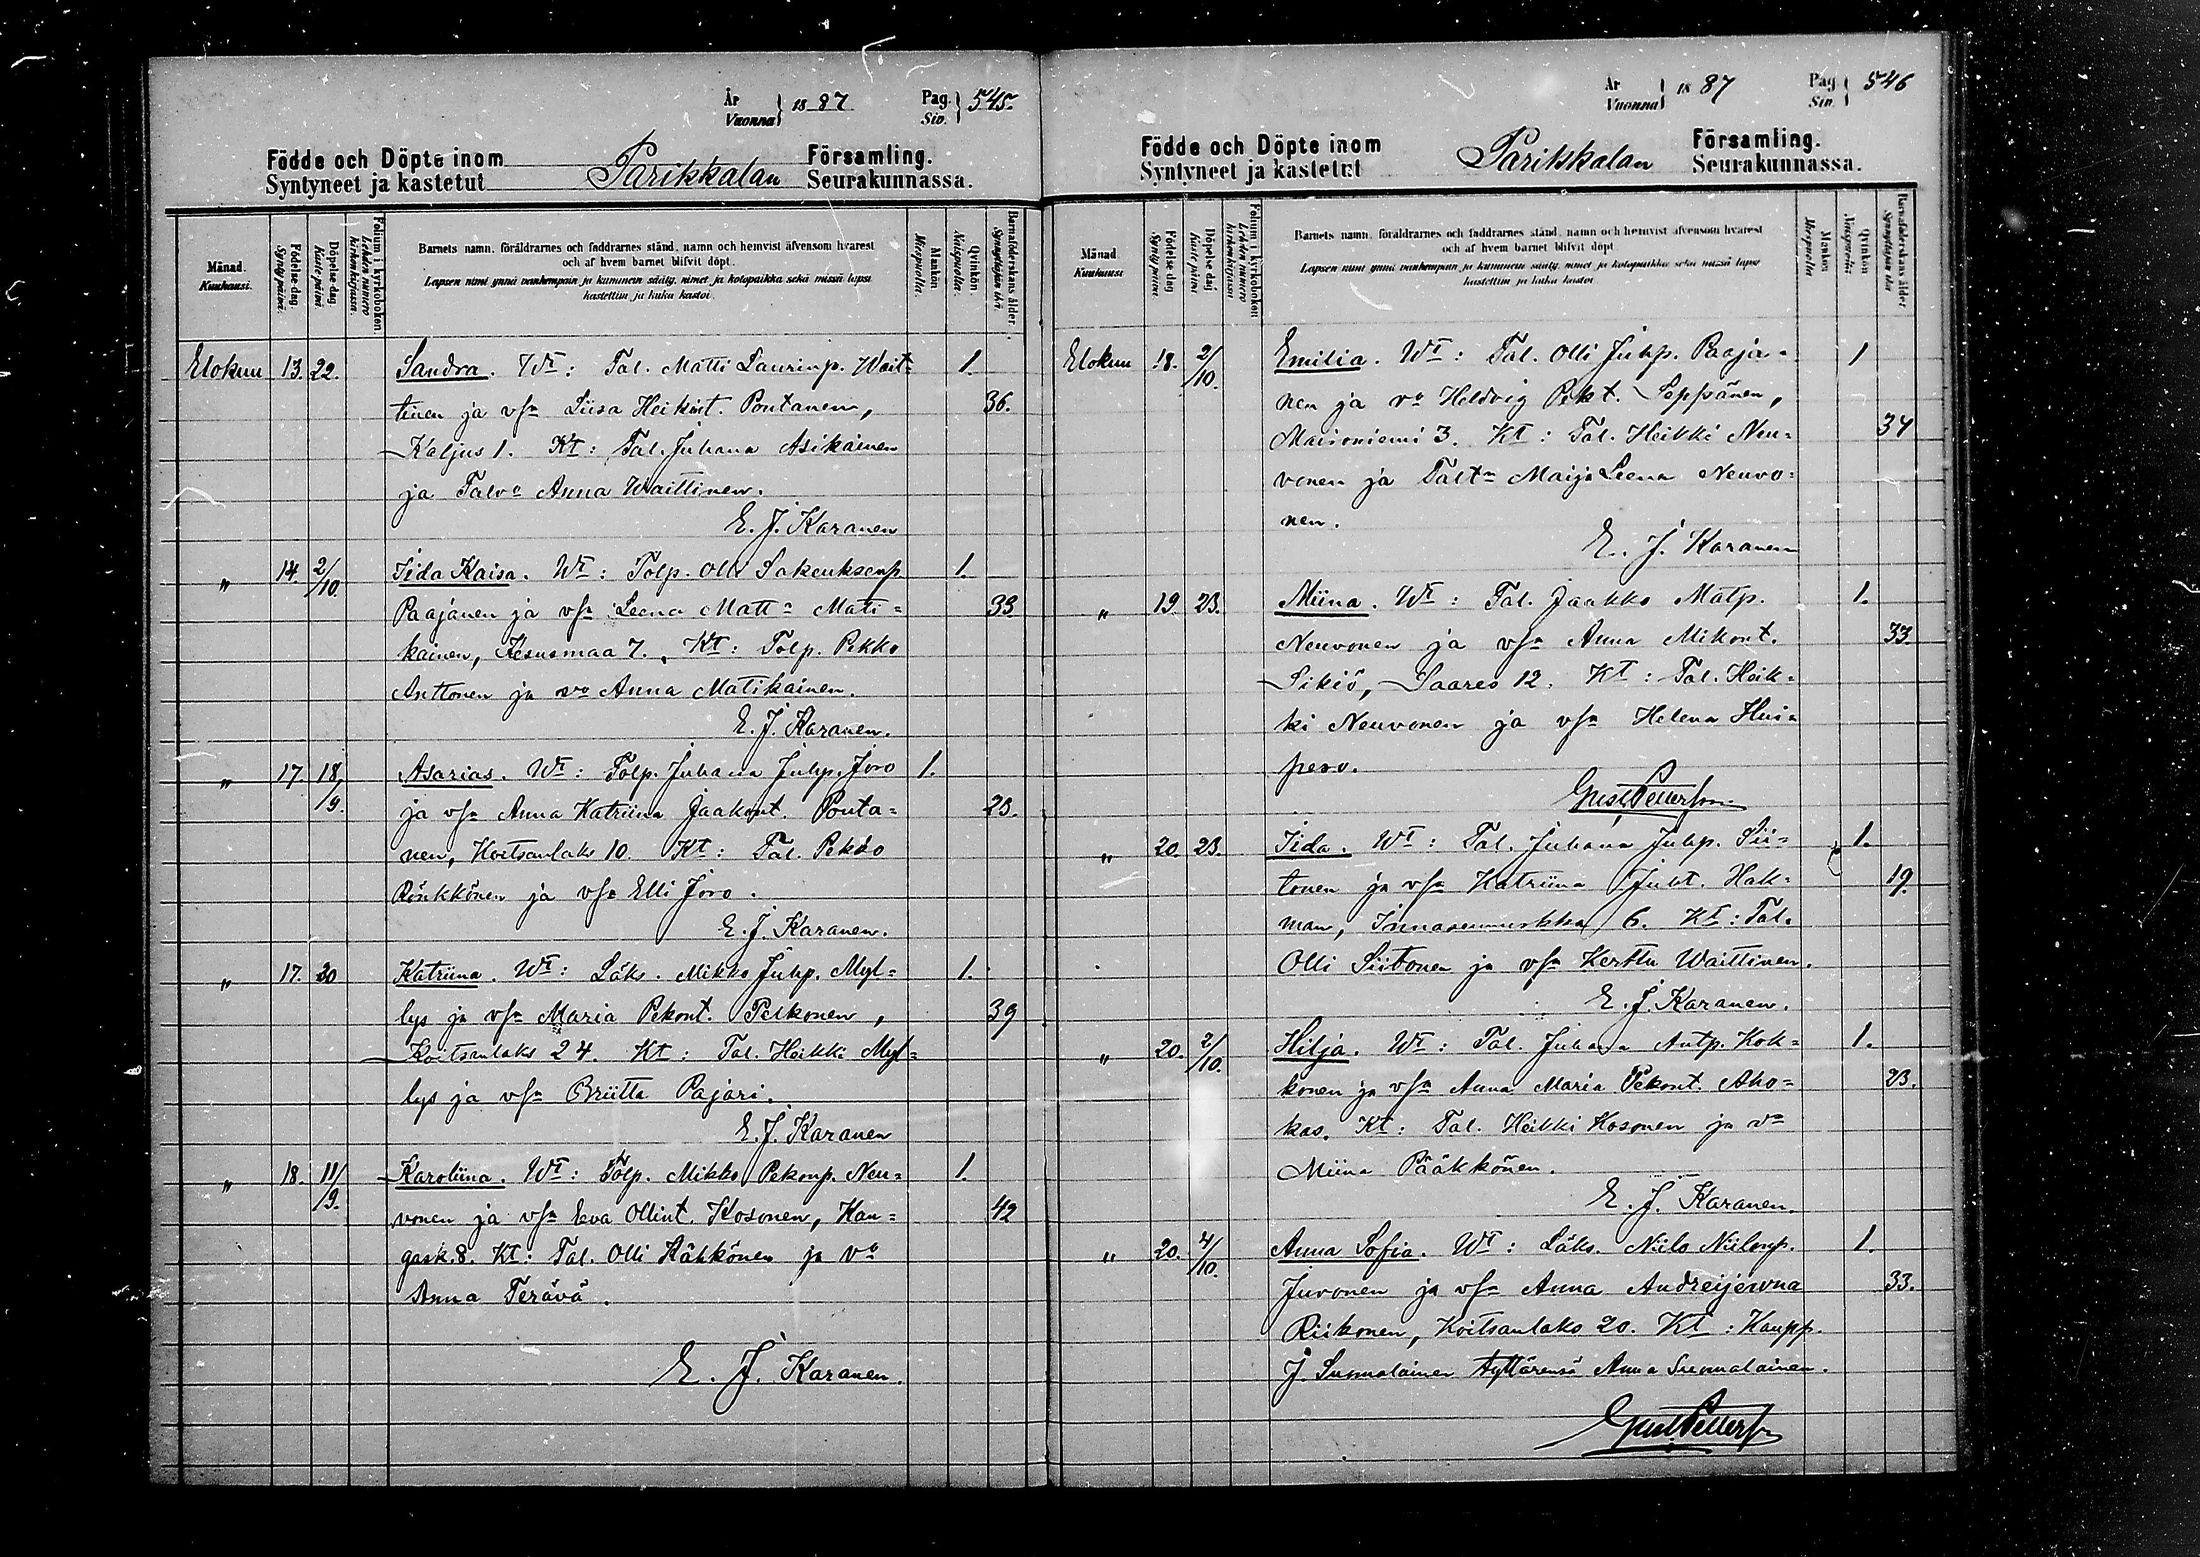 År
Vuonna } 1887 Pag.
Siv. } 545.
Födde och Döpte inom
Syntyneet ja kastetut Parikkalan Församling.
Seurakunnassa.
Månad.
Kuukausi.
Födelse-dag.
Syntypäivä.
Döpelse-dag.
Kastepäivä.
Folium i kyrkoboken
Lehden numero
kirkonkirjassa.
Barnets namn, föräldrarnes och faddrarnes stånd, namn och hemvist äfvensom hvarest
och af hvem barnet blifvit döpt.
Lapsen nimi ynnä vanhempain ja kummein sääty, nimet ja kotopaikka sekä missä lapsi
kastettiin ja kuka kastoi.
Mankön.
Miespuolia.
Qvinkön.
Naispuolia.
Barnaföderskans ålder.
Synnyttäjän ikä.
Elokuu 13. 22. Sandra. Wt: Tal. Matti Laurinp. Wait- 1.
tinen ja vsa Liisa Heikint. Pontanen, 36.
Kaljus 1. Kt: Tal. Juhana Asikainen
ja Talvo Anna Waittinen.
E. J. Karanen
" 14. 2/10. Iida Kaisa. Wt: Tolp. Olli Sakeuksenp. 1.
Paajanen ja vsa Leena Matt= Mati= 33.
kainen, Kesusmaa 7. Kt: Tolp. Pekko
Anttonen ja vo Anna Matikainen.
E. J. Karanen.
" 17. 18/9. Asarias. Wt: Tolp. Juhana Juhp. Joro 1.
ja vsa Anna Katriina Jaakont. Ponta= 23.
nen, Koitsanlaks 10. Kt: Tal. Pekko
Rönkkönen ja vsa Elli Joro.
E. J. Karanen.
" 17. 20 Katriina. Wt: Läks. Mikko Juhp. Myl= 1.
lys ja vsa Maria Pekont. Pelkonen, 39
Koitsanlaks 24. Kt: Tal. Heikki Myl=
lys ja vsa Briitta Pajari.
E. J. Karanen
" 18. 11/9. Karoliina. Wt: Tolp. Mikko Pekonp. Neu= 1.
vonen ja vsa Eeva Ollint. Kosonen, Kan= 42
gask. 8. Kt: Tal. Olli Kähkönen ja vo
Anna Terävä.
E. J. Karanen.
År
Vuonna } 1887 Pag
Siv. } 546
Födde och Döpte inom
Syntyneet ja kastetut Parikkalan Församling.
Seurakunnassa.
Månad
Kuukausi
Födelse dag
Syntypäivä
Döpelse dag
Kastepäivä
Folium i kyrkoboken
Lehden numero
kirkonkirjassa
Barnets namn, föräldrarnes och faddrarnes stånd, namn och hemvist äfvensom hvarest
och af hvem barnet blifvit döpt.
Lapsen nimi ynnä vanhempain ja kummein sääty, nimet ja kotopaikka sekä missä lapsi
kastettiin ja kuka kastoi
Mankön
Miespuolia
Qvinkön
Naispuolia
Barnaföderskans ålder
Synnyttäjän ikä
Elokuu 18. 2/10. Emilia. Wt: Tal. Olli Juhp. Paaja= 1
nen ja vo Heldvig Pekt. Seppänen,
Maironiemi 3. Kt: Tal. Heikki Neu= 34
vonen ja Talt= Maija Leena Neuvo=
nen.
E. J. Karanen
" 19. 23. Miina. Wt: Tal. Jaakko Matp. 1.
Neuvonen ja vsa Anna Mikont. 33.
Sikiö, Saares 12. Kt: Tal. Heik=
ki Neuvonen ja vsa Helena Hui=
pero.
Gust Petterson
" 20. 23. Iida. Wt: Tal. Juhana Juhp. Sii= 1.
tonen ja vsa Katriina Juht. Hak= 19.
man, Innasennurkka 6. Kt: Tal.
Olli Siitonen ja vsa Kerttu Waittinen.
E. J. Karanen.
" 20. 2/10. Hilja. Wt: Tal. Juhana Antp. Kok= 1.
konen ja vsa Anna Maria Pekont. Aho= 23.
kas. Kt: Tal. Heikki Kosonen ja vo
Miina Pääkkönen.
E. J. Karanen.
" 20. 4/10. Anna Sofia. Wt: Läks. Niilo Niilonp. 1.
Juvonen ja vsa Anna Andreijewna 33.
Riikonen, Koitsanlaks 20. Kt: Kaupp.
J. Suomalainen tyttärensä Anna Suomalainen.
Gust Petterson